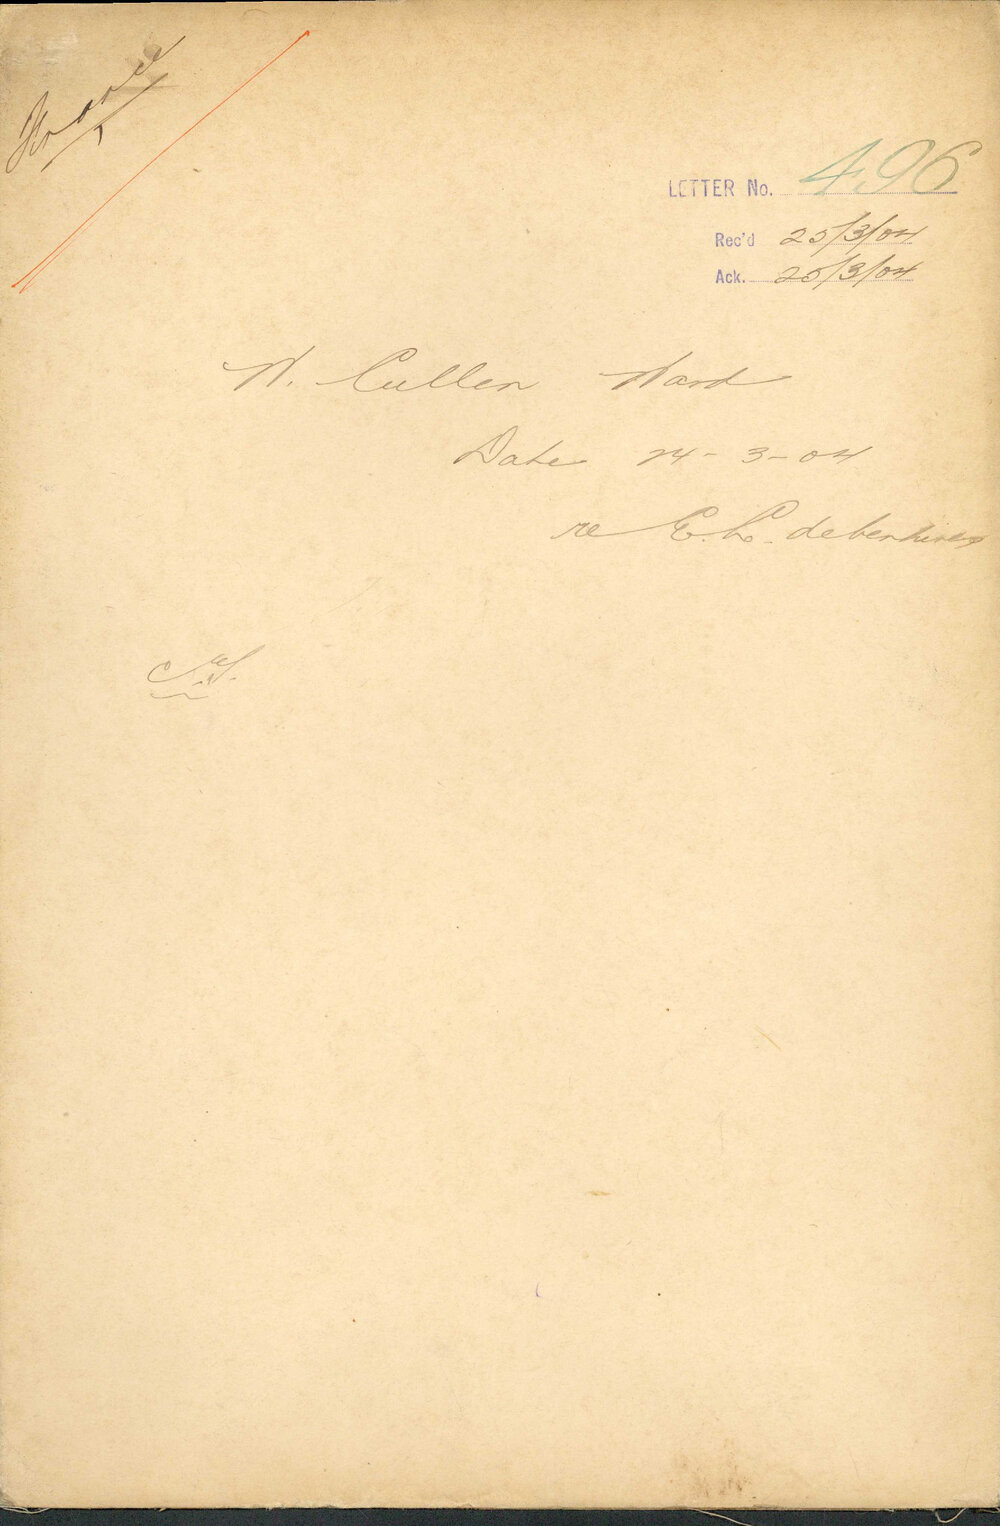 LETTER No. 496
Rec'd 25/3/04
Ack. 25/3/04
W. Cullen Ward
Date 24-3-04
re E.L. debentures